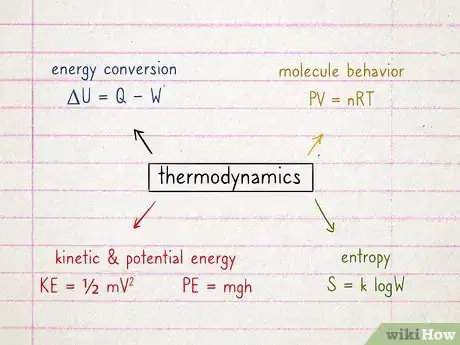 energy conversion
ΔU = Q - W
molecule behavior
PV = nRT
thermodynamics
kinetic & potential energy
KE = ½ mV² PE = mgh
entropy
S = k logW
wikiHow